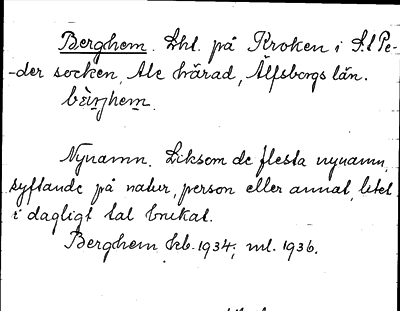 Berghem. Lht. på Kroken i S:t Pe-
-der socken, Ale härad, Älfsborgs län.
bær̀jhem.
Nynamn. Liksom de flesta nynamn,
syftande på natur, person eller annat, litet
i dagligt tal brukat.
Berghem kb. 1934; ml. 1936.